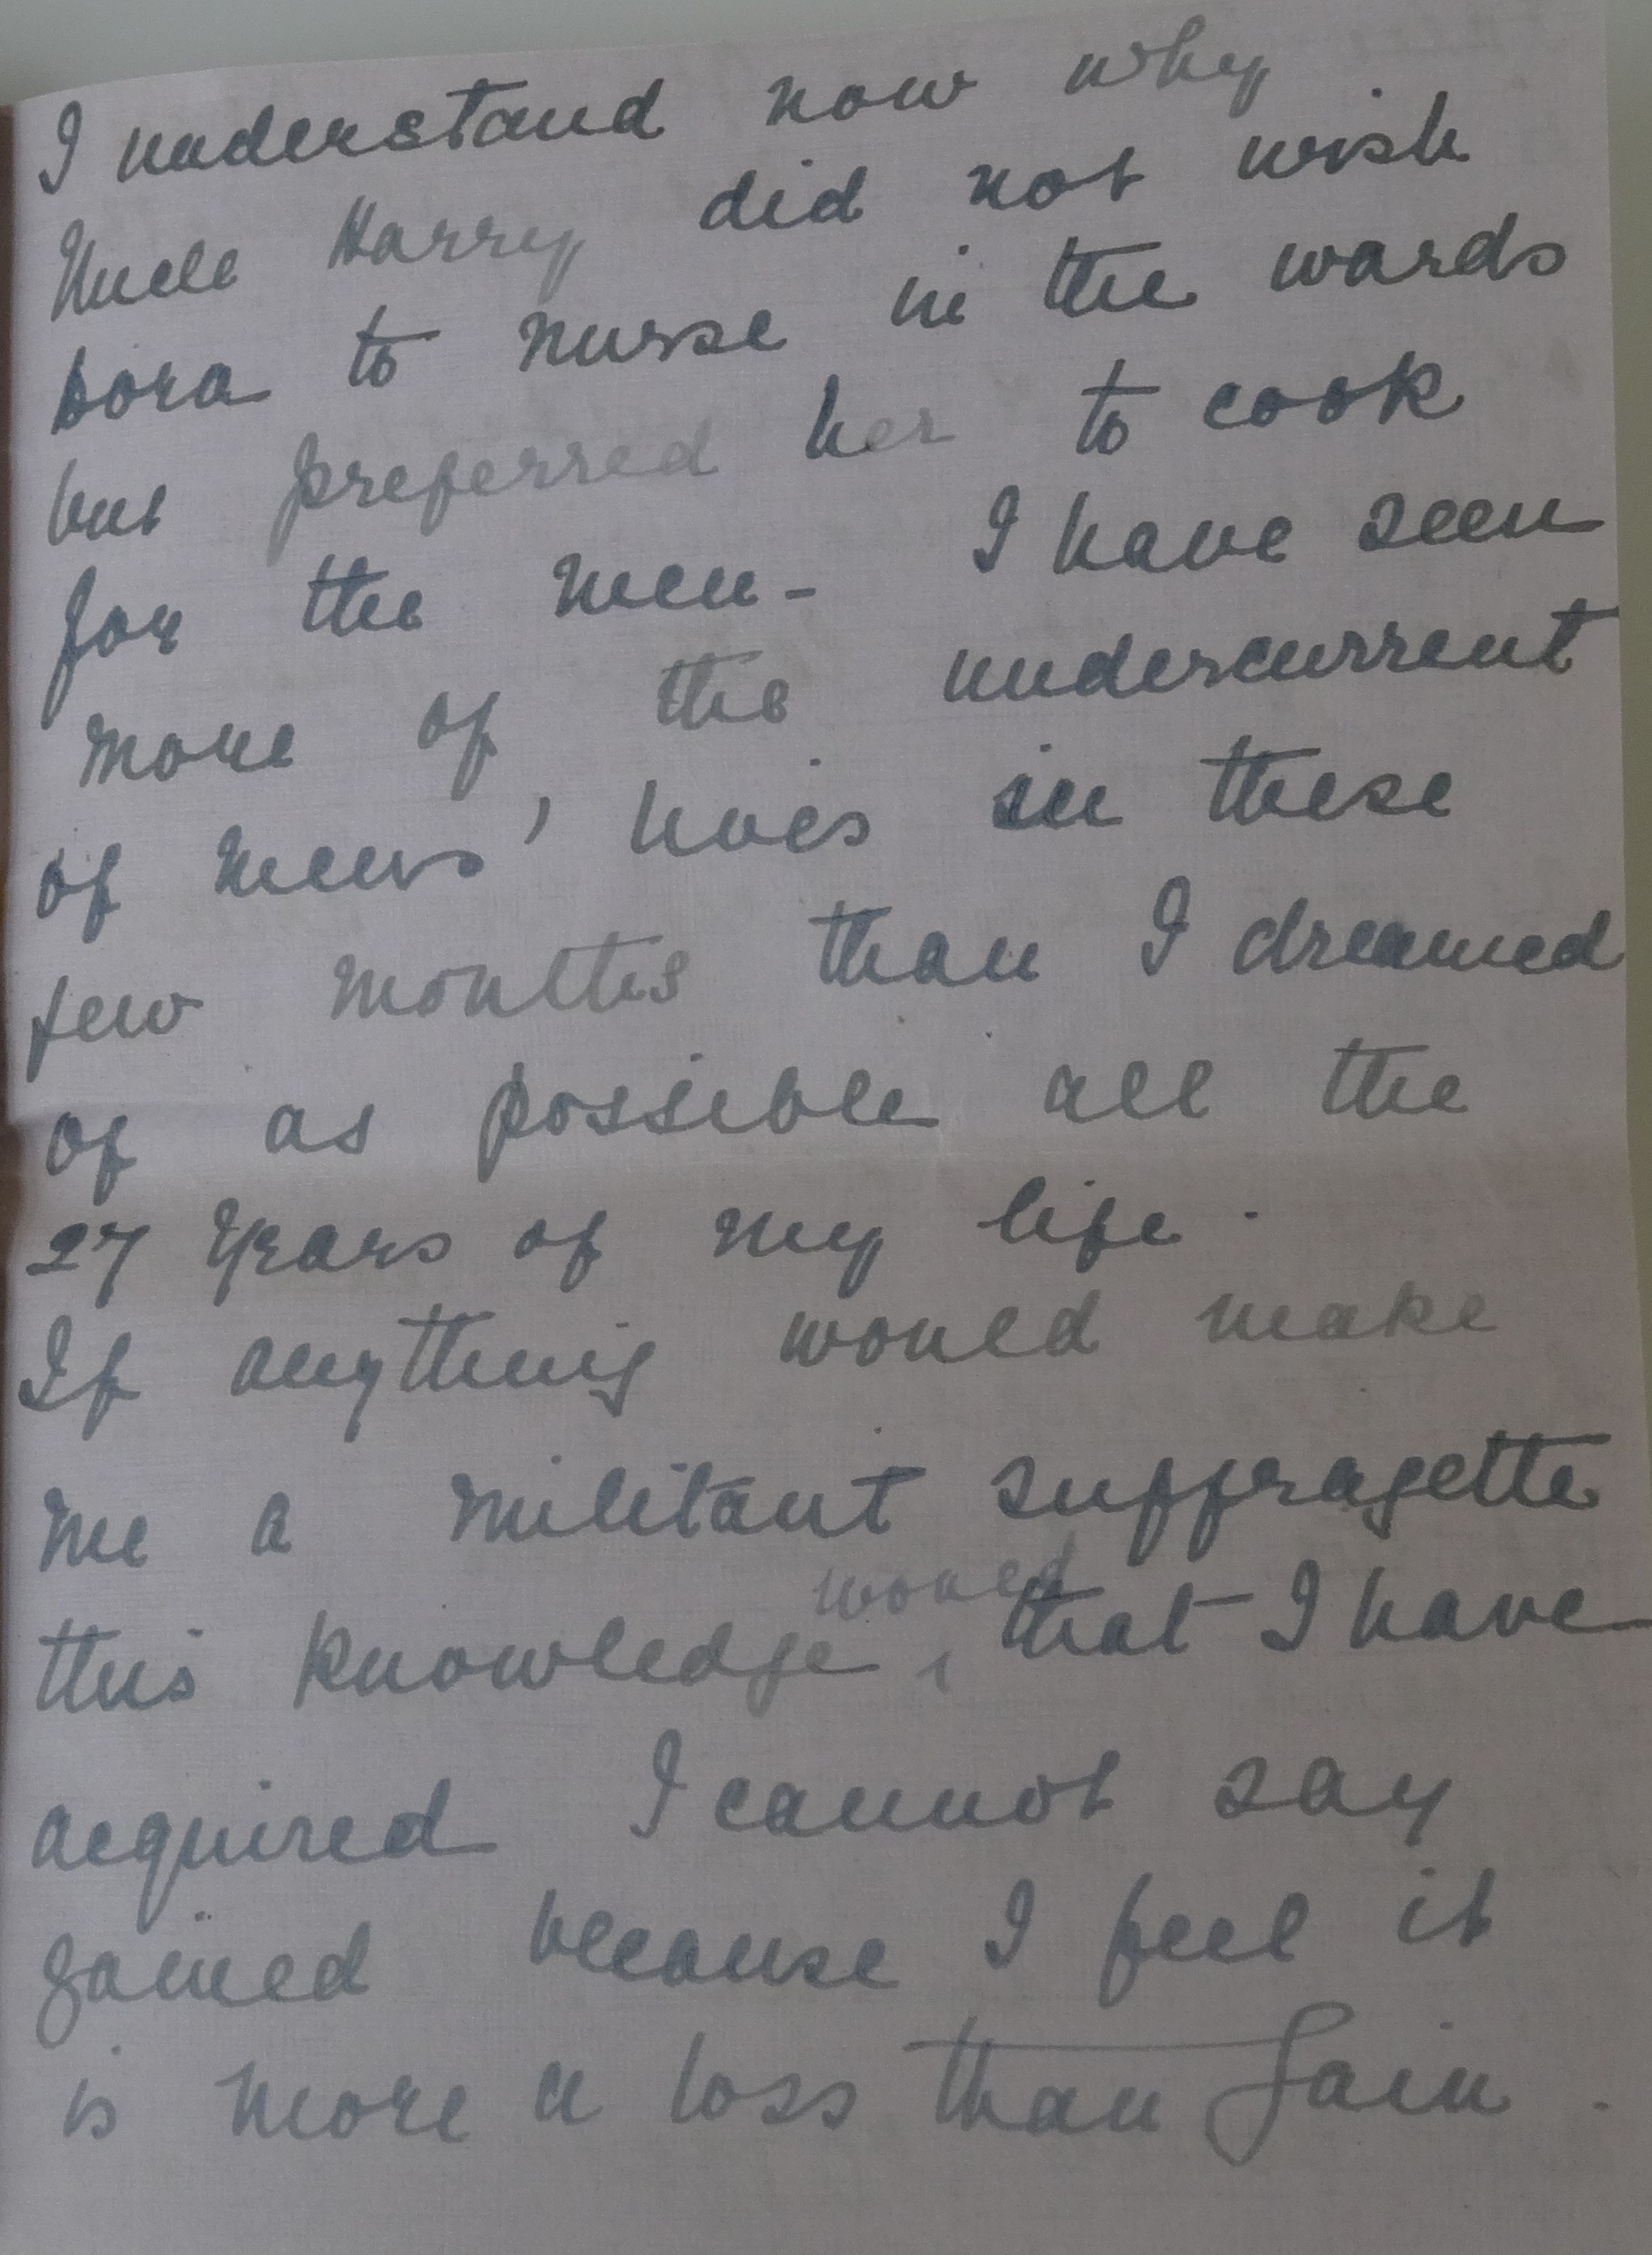 I understand now why
Uncle Harry did not wish
Dora to nurse in the wards
but preferred her to cook
for the men - I have seen
more of the undercurrent
of mens' lives in these
few months than I dreamed
of as possible all the
27 years of my life.
If anything would make
me a militant suffragette
would
this knowledge, that I have
acquired I cannot say
gained because I feel it
is more a loss than gain.